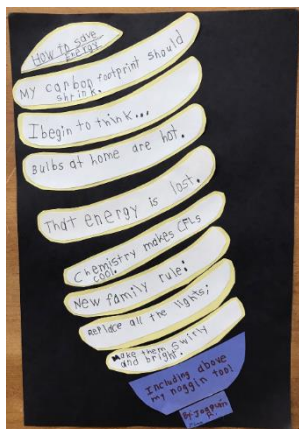 How to save
energy
My carbon footprint should
shrink.
I begin to think...
Bulbs at home are hot.
That energy is lost.
Chemistry makes CFLs
cool.
New family rule:
Replace all the lights;
Make them swirly
and bright.
Including above
my noggin too!
By: